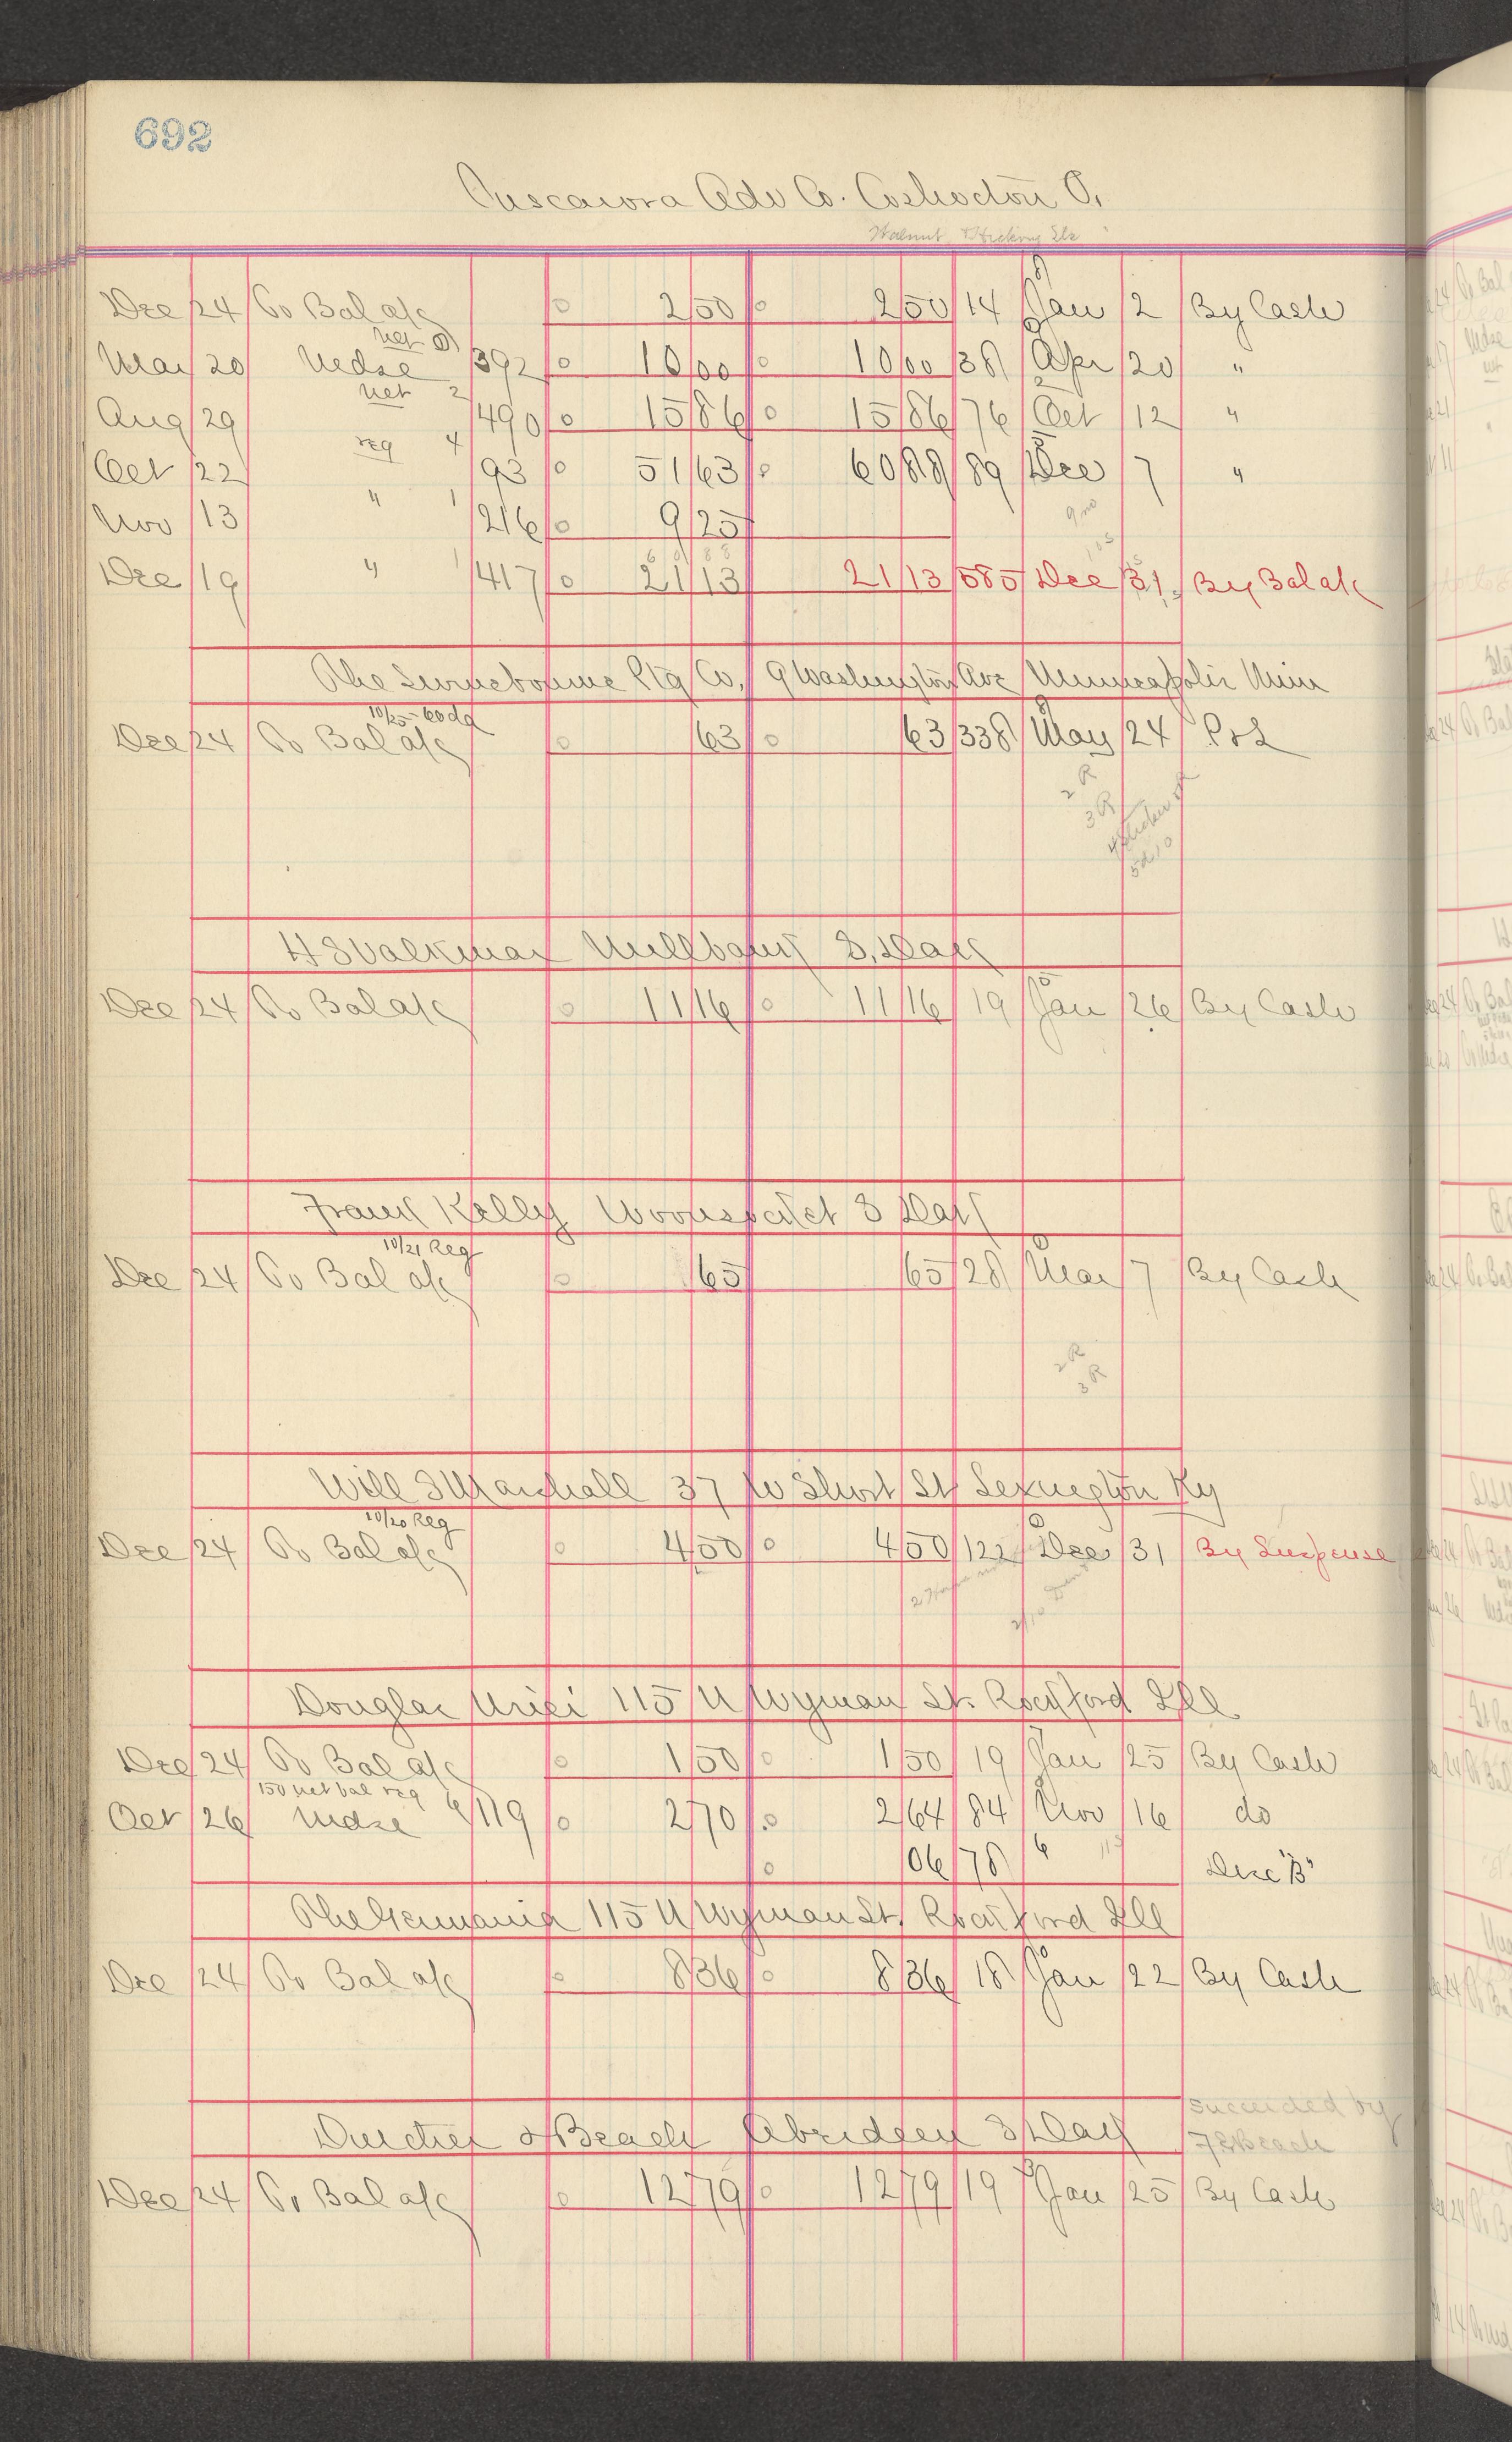 692
Tuscarora Adv Co. Coshocton O.
Walnut Hickory Sts
Dec 24 To Bal a/c 2 50 2 50 14 Jan 2 By Cash
net
Mar 20 Mdse 392 10 00 10 00 38 Apr 20 "
net 2
Aug 29 490 15 86 15 86 76 Oct 12 "
reg 4
Oct 22 93 51 63 60 88 89 Dec 7 "
Nov 13 " 1 216 9 25
60 88
Dec 19 " 1 417 21 13 21 13 585 Dec 31 By Bal a/c
The Ptg Co. 9 Washington Ave Minneapolis Minn
10/25 - 60 dq
Dec 24 To Bal a/c 63 63 338 May 24 P&L
2 R
3 R
H S Valkmar Millbank S. Dak
Dec 24 To Bal a/c 11 16 11 16 19 Jan 26 By Cash
Frank Kelly Woonsocket S Dak
10/21 Reg
Dec 24 To Bal a/c 65 65 28 Mar 7 By Cash
2 R
3 R
Will S Marshall 37 W Short St Lexington Ky
10/20 Reg
Dec 24 To Bal a/c 4 50 4 50 122 Dec 31 By Suspense
Douglas 115 N Wyman St. Rockford Ill
Dec 24 To Bal a/c 1 50 1 50 19 Jan 25 By Cash
150 net bal reg
Oct 26 Mdse 6 119 2 70 2 64 84 Nov 16 do
06 78 6 Disc "B"
The Germania 115 N Wyman St. Rockford Ill
Dec 24 To Bal a/c 8 36 8 36 18 Jan 22 By Cash
succeeded by
Dutcher & Beach Aberdeen S Dak
Beach
Dec 24 To Bal a/c 12 79 12 79 19 Jan 25 By Cash